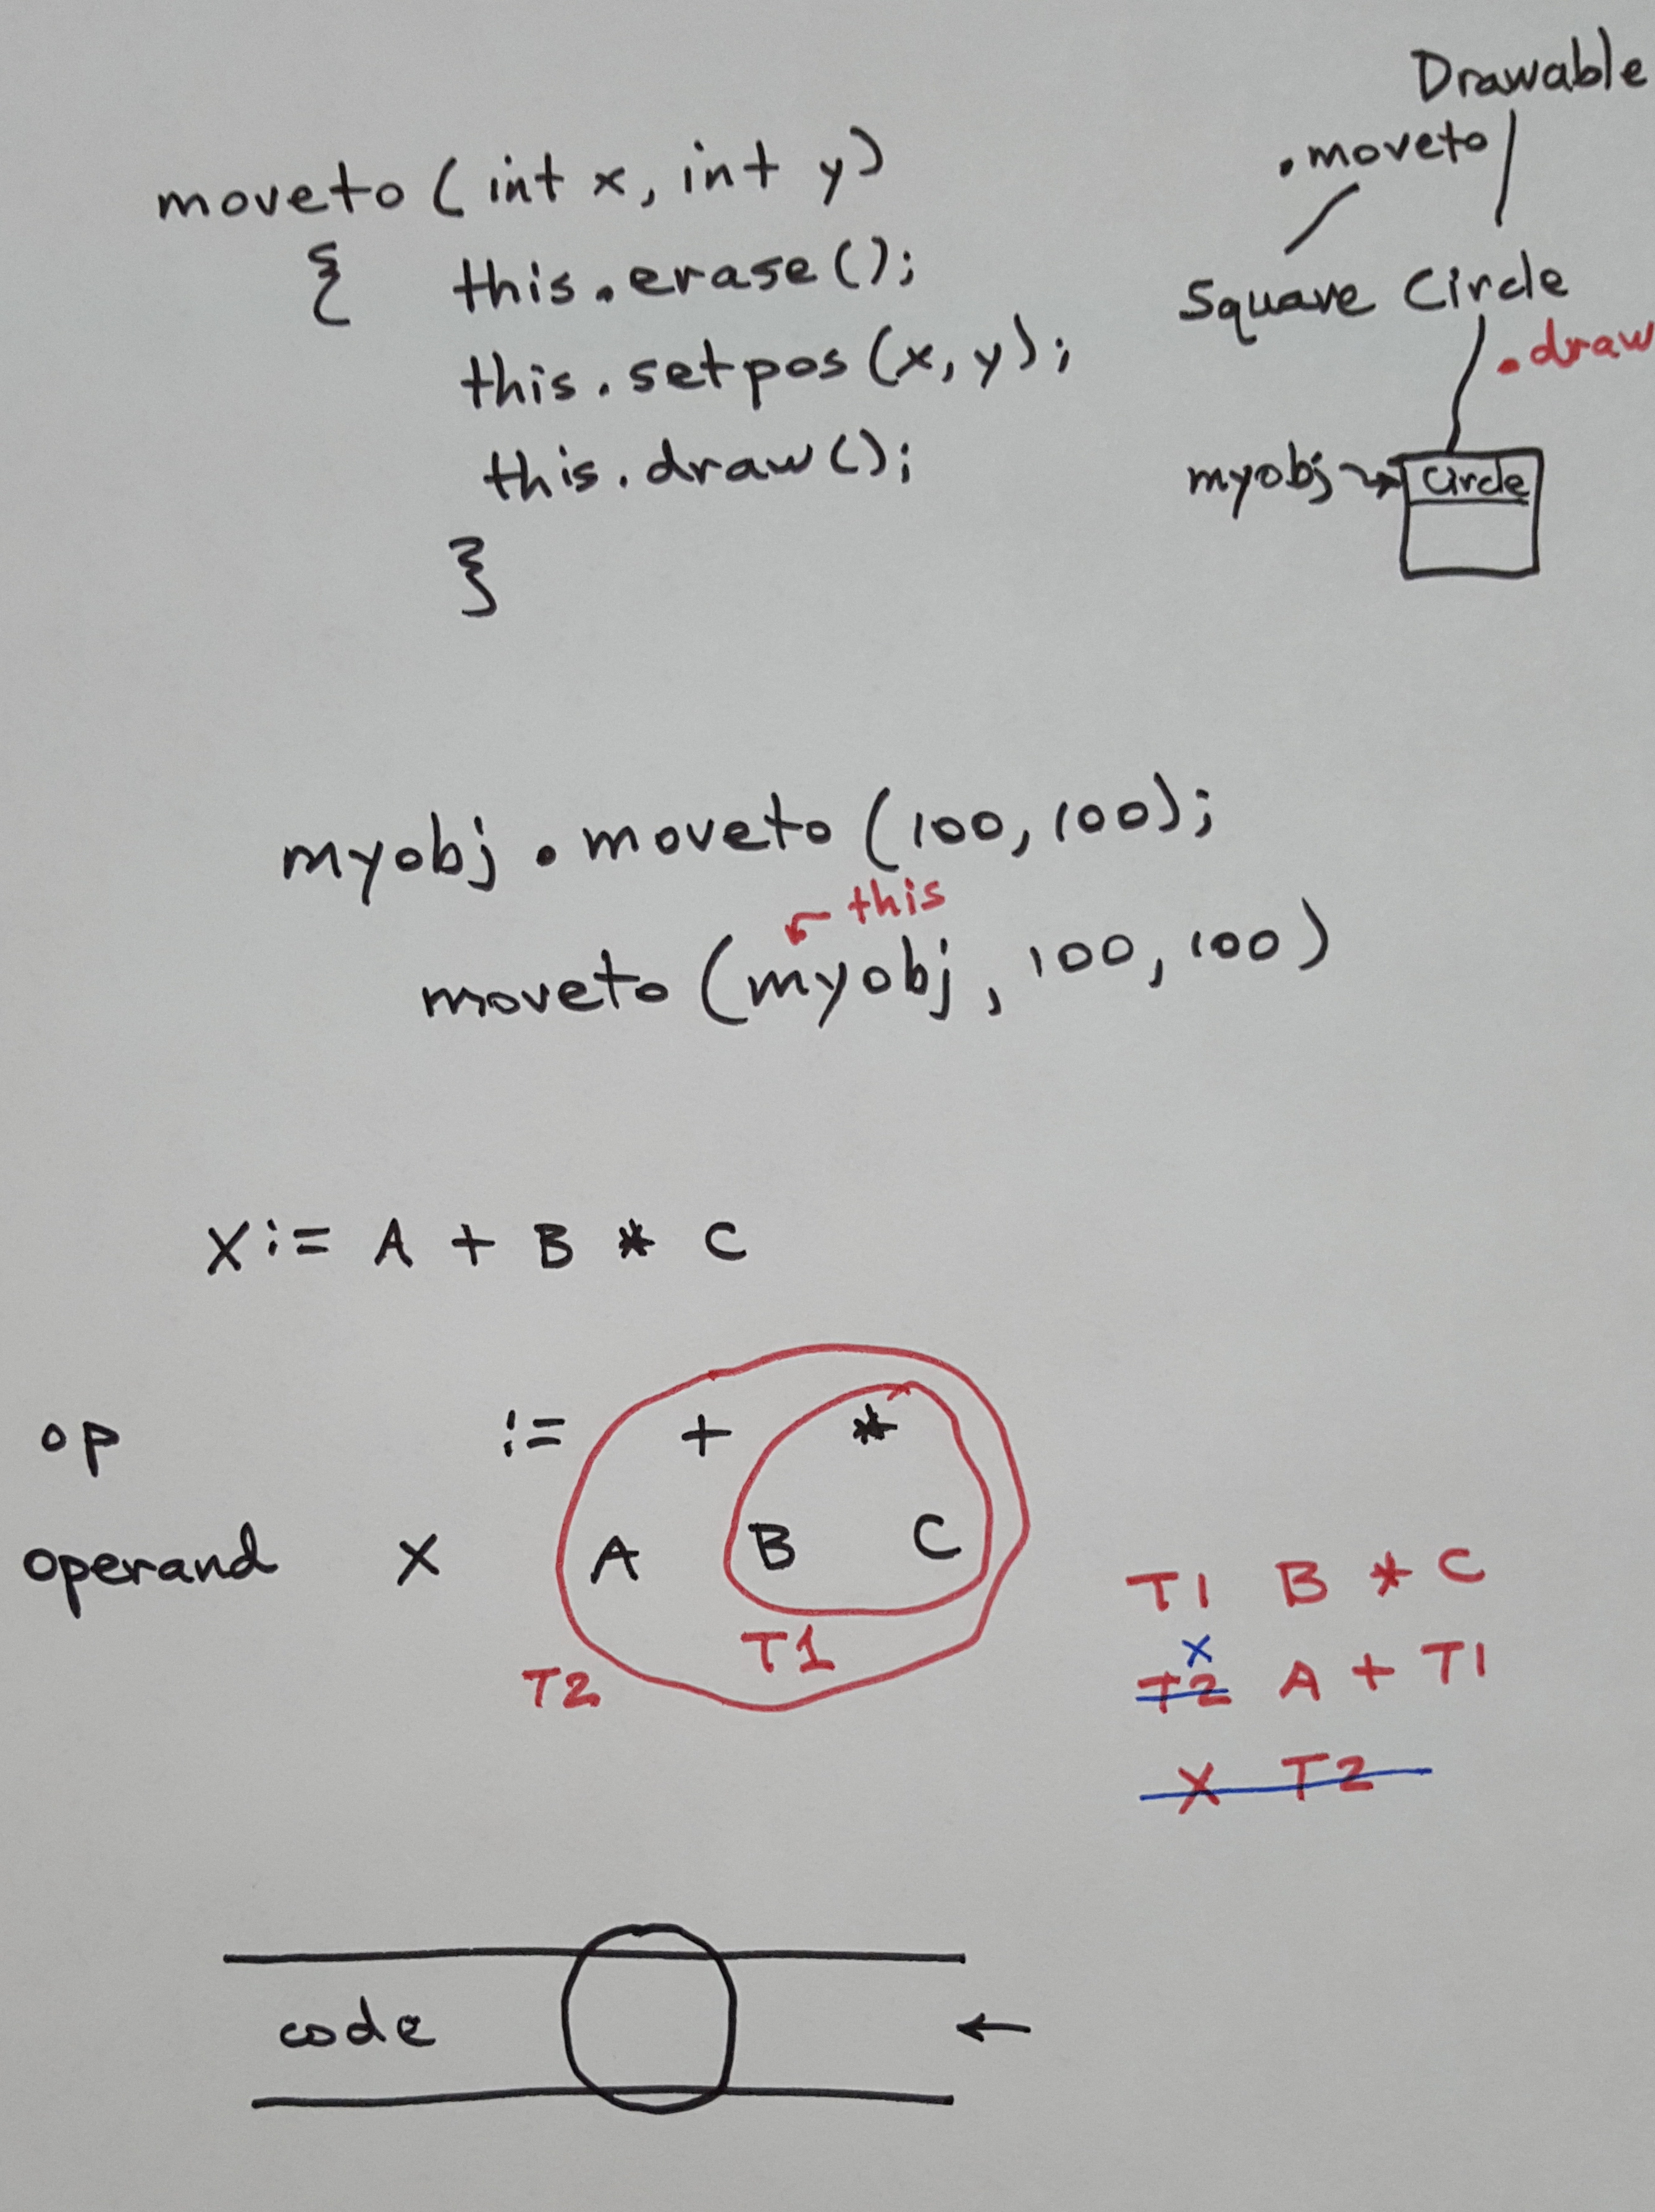 Drawable
.moveto
moveto (int x, int y)
{ this.erase();
Square Circle
this.setpos(x,y);
.draw
this.draw();
myobj
Circle
}
myobj.moveto(100,100);
this
moveto(myobj,100,100)
X := A + B * C
op := + *
operand X A B C
T1
T2
T1 B * C
X
T2 A + T1
X T2
code